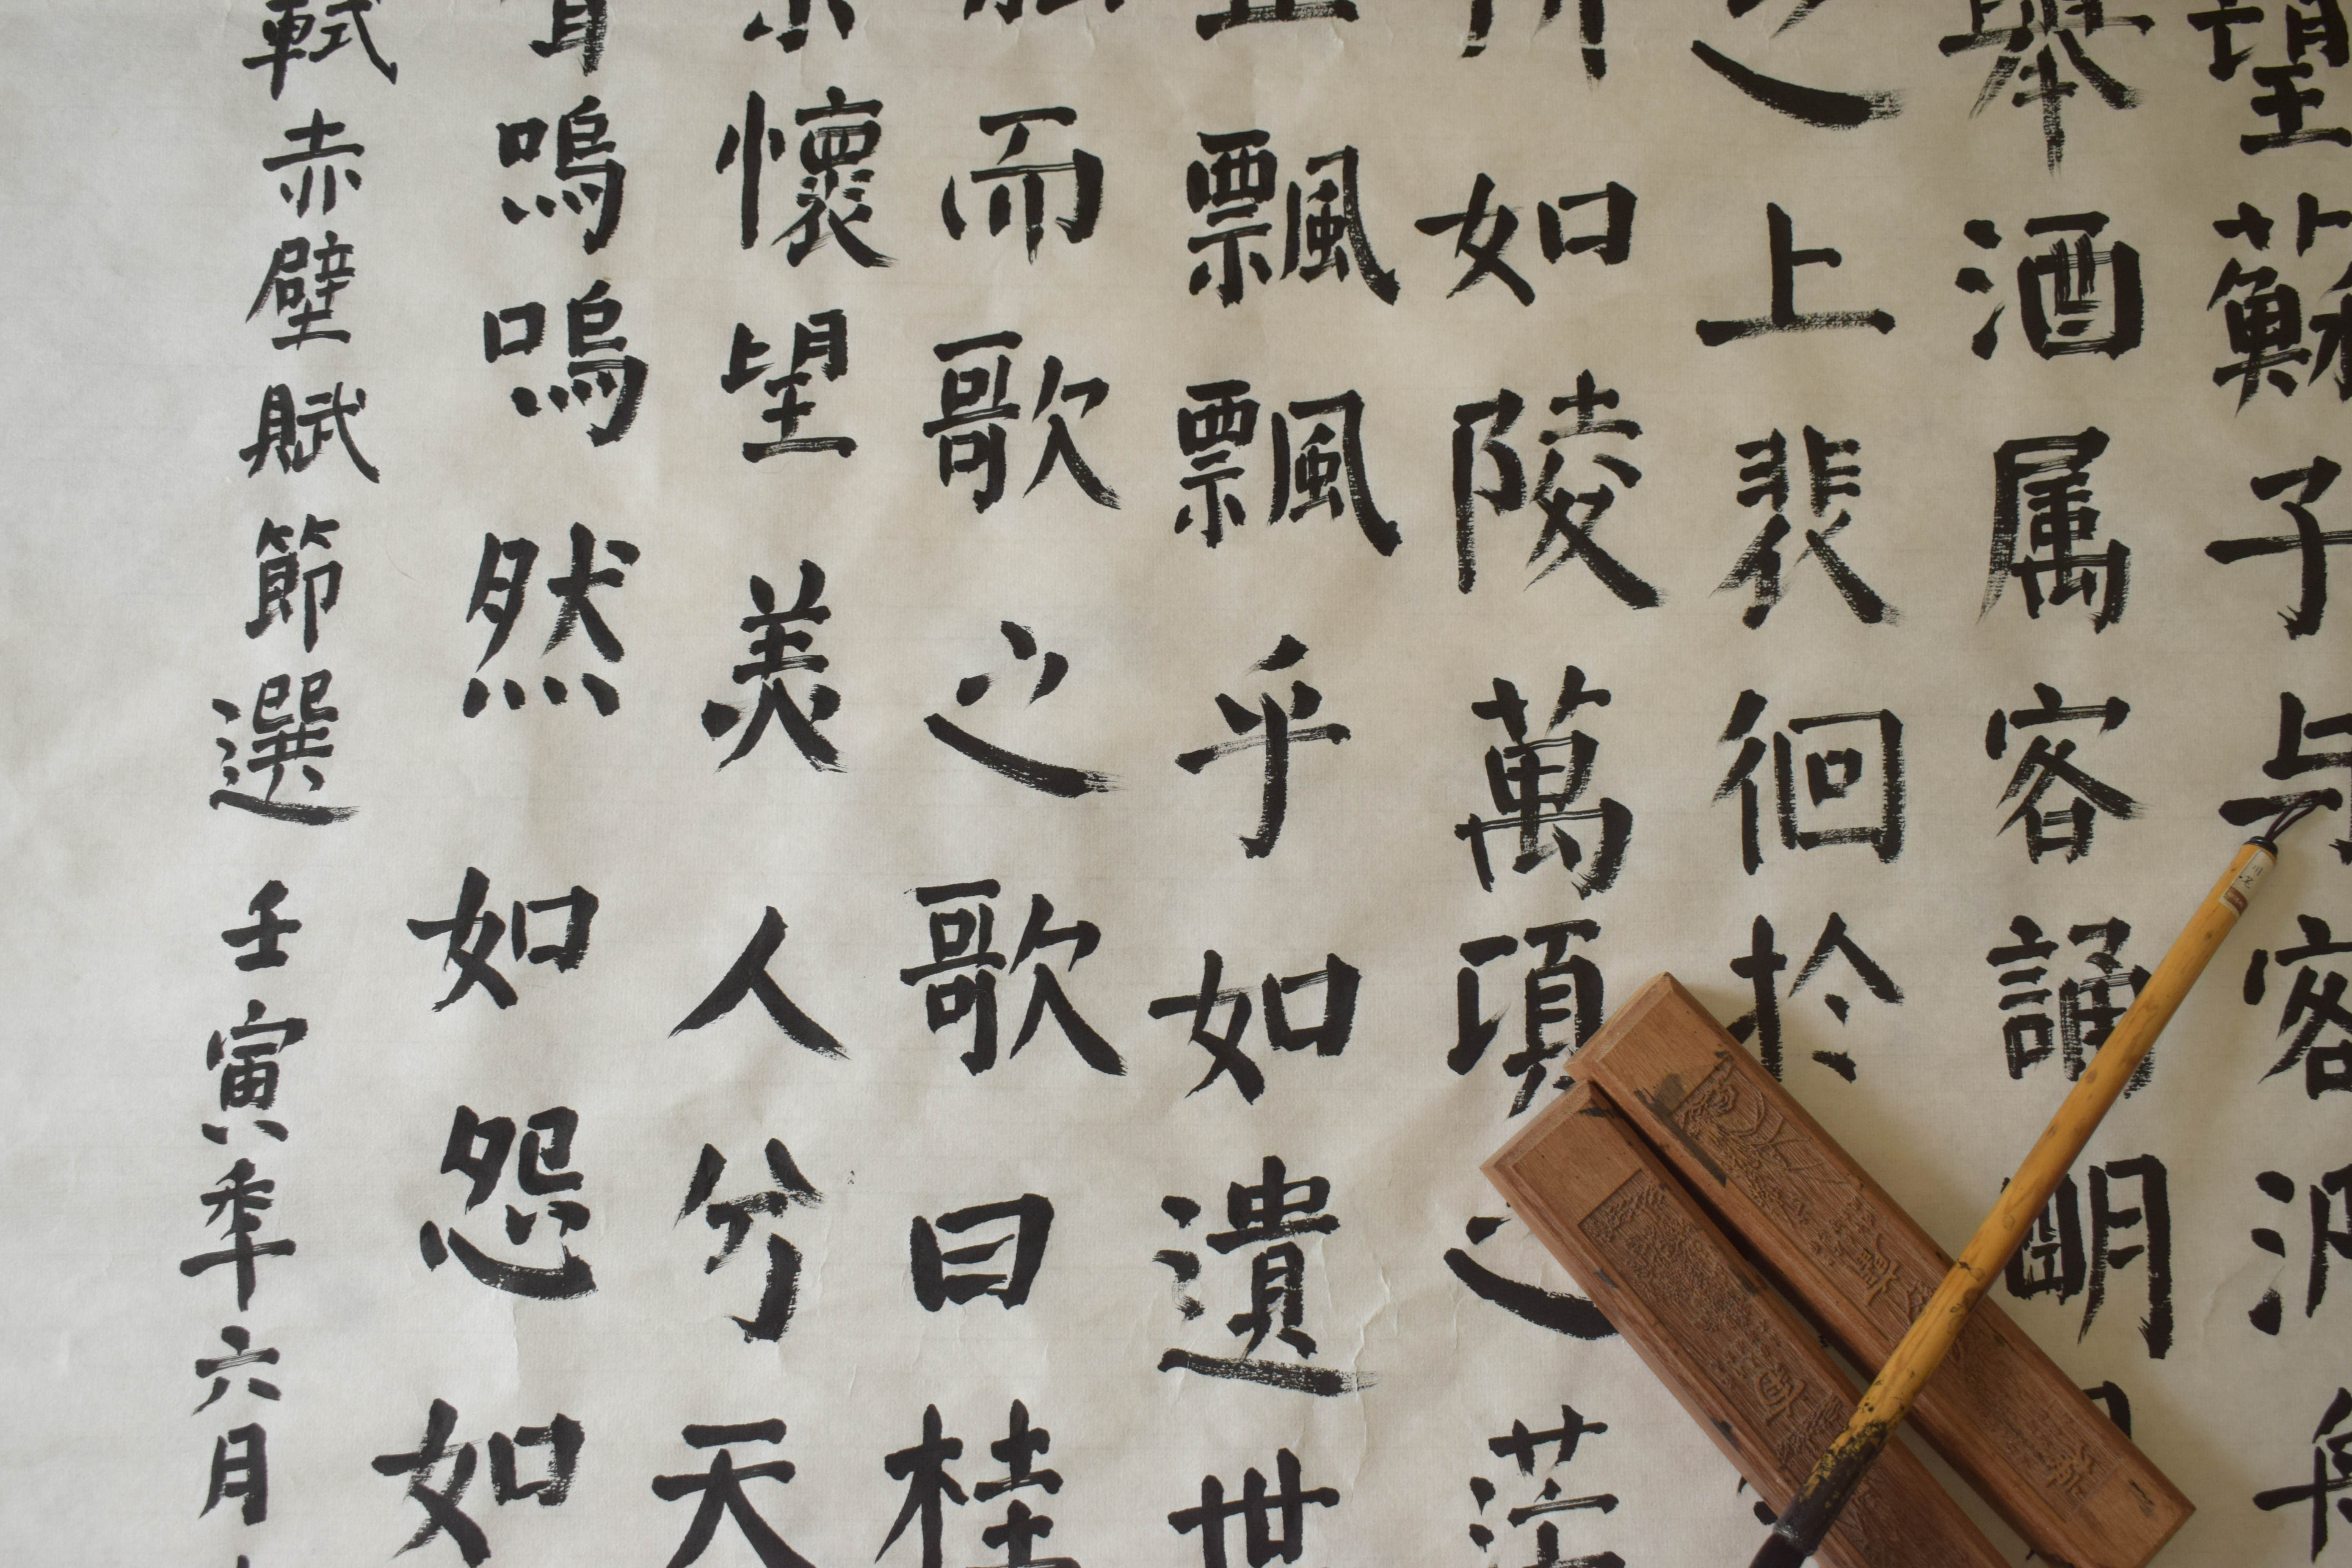 望蘇子与客泛舟
舉酒属客誦明
之上裴徊於
如陵萬頃之茫
飄飄乎如遺世
而歌之歌曰桂
懷望美人兮天
嗚嗚然如怨如
軾赤壁賦節選壬寅秊六月